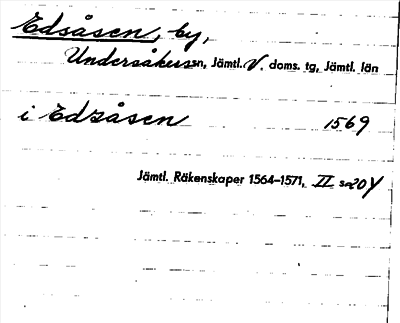 Edsåsen, by,
Undersåkers sn, Jämtl. V. doms. tg, Jämtl. län
i Edzåsen 1569
Jämtl. Räkenskaper 1564-1571, II s. 20